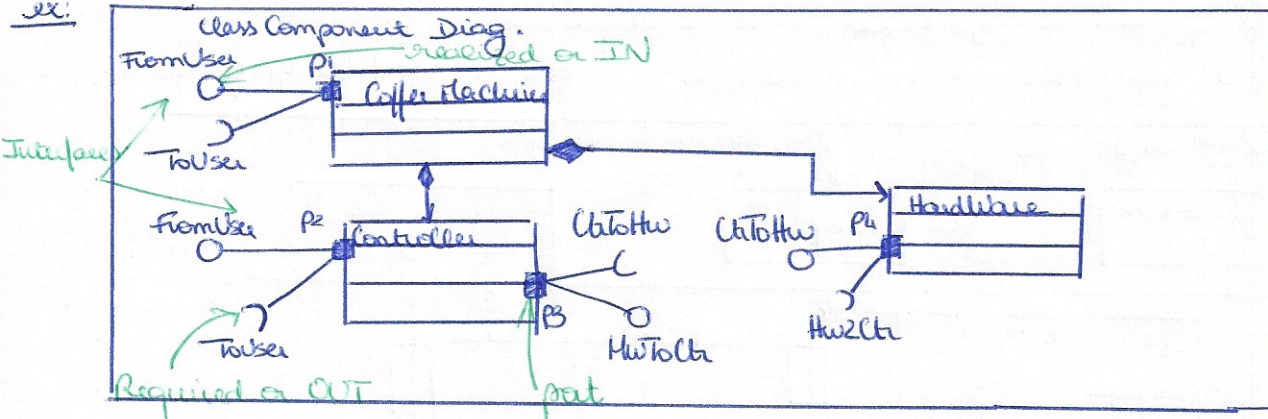 ex:
Class Component Diag.
FromUser
P1
realized or IN
Coffer Machine
Interfaces
ToUser
HardWare
FromUser
P2
Controller
CtrToHw
CtrToHw
P4
P3
ToUser
HwToCtr
Hw2Ctr
Required or OUT
port